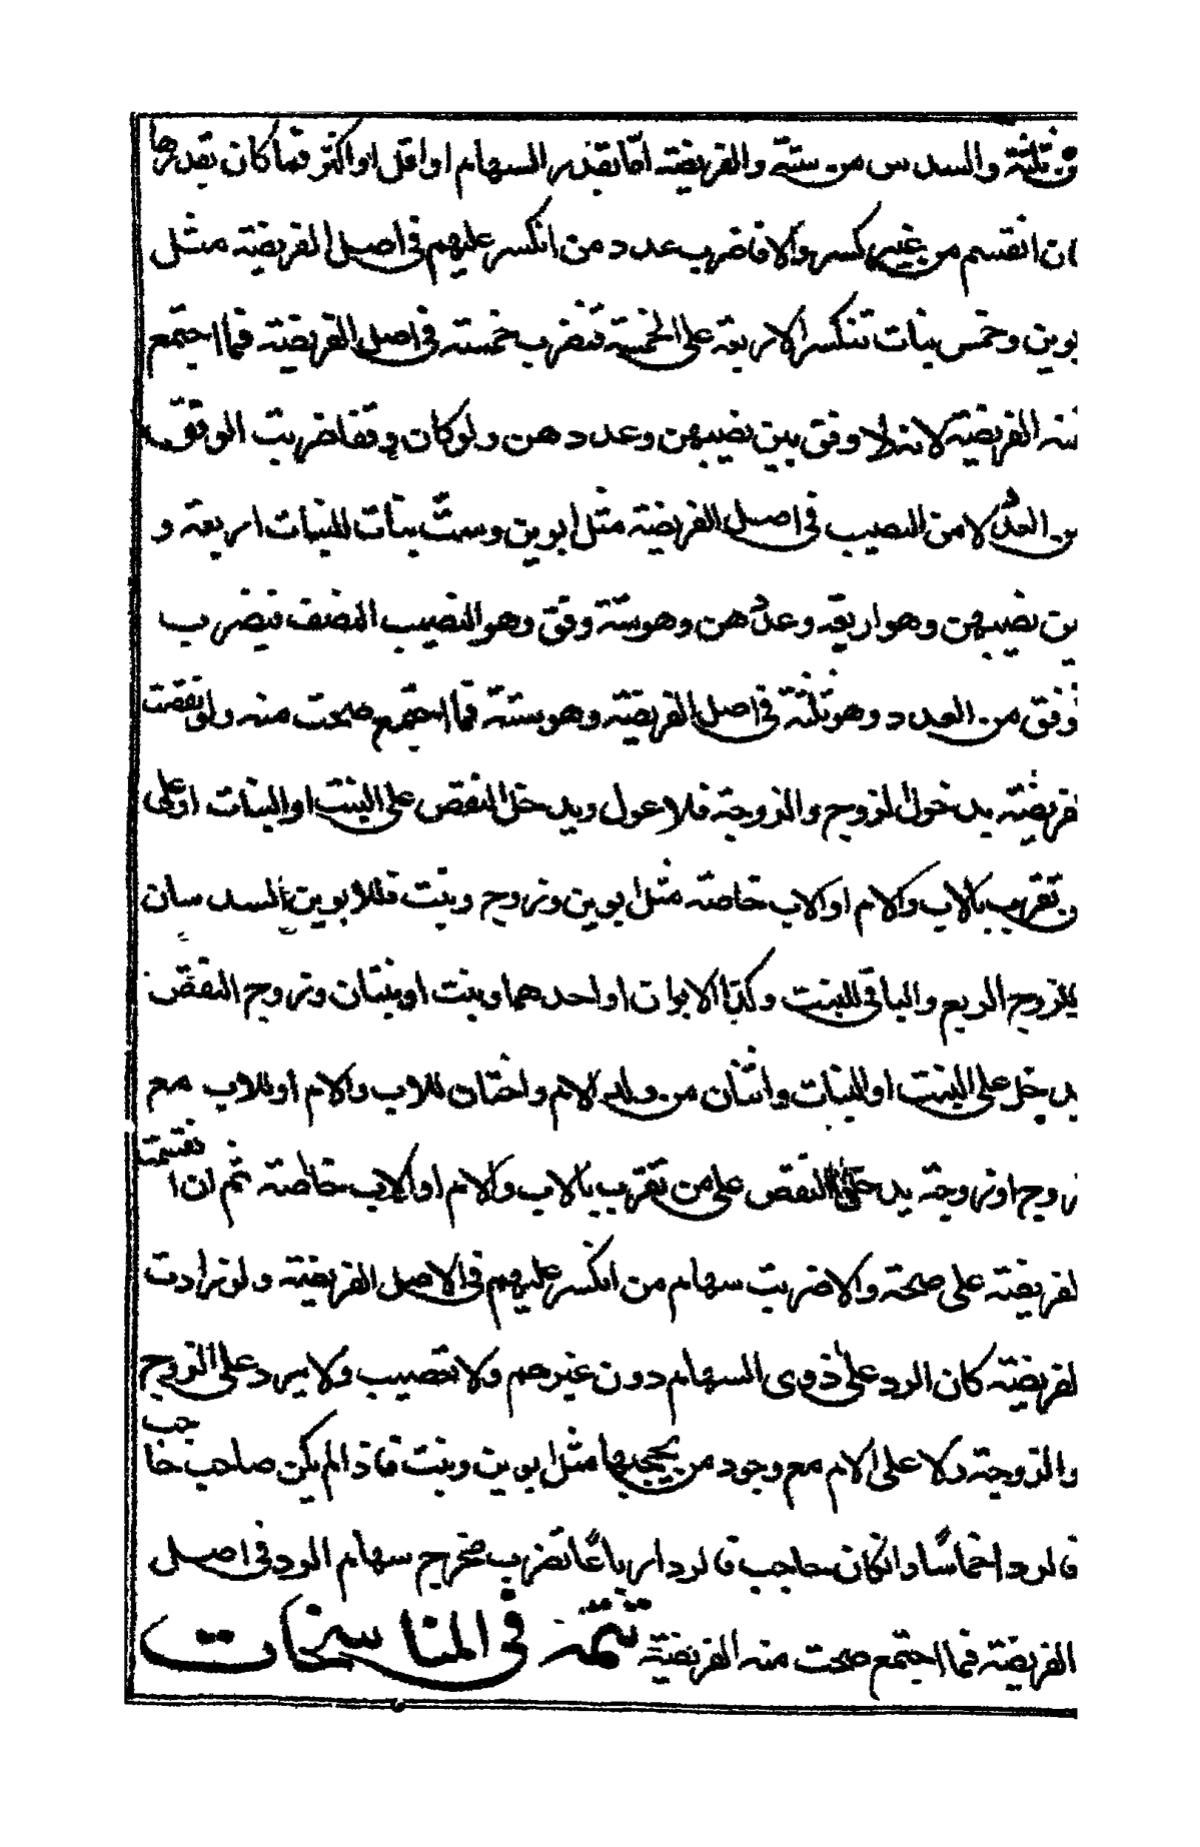 من ثلثة والسدس من ستة والفريضة اما بقدر السهام او اقل او اكثر فما كان بقدرها
ان انقسم من غير كسر والا فاضرب عدد من انكسر عليهم في اصل الفريضة مثل
بوين وخمس بنات تنكسر الاربعة على الخمسة فتضرب خمسة في اصل الفريضة فما اجتمع
منه الفريضة لانه لا وفق بين نصيبهن وعددهن ولو كان وفقا ضربت الوفق
من العدد لا من النصيب في اصل الفريضة مثل ابوين وست بنات للبنات اربعة و
بين نصيبهن وهو اربعة وعددهن وهو ستة وفق وهو النصيب النصف فيضرب
لوفق من العدد وهو ثلثة في اصل الفريضة وهو ستة فما اجتمع صحت منه ولو نقصت
لفريضة بدخول الزوج والزوجة فلا عول ويدخل النقص على البنت او البنات او على
من تقرب بالاب والام او الاب خاصة مثل ابوين وزوج وبنت فللابوين السدسان
وللزوج الربع والباقي للبنت وكذا الابوان او احدهما وبنت او بنتان وزوج النقص
يدخل على البنت او البنات واثنان من ولد الام واختان للاب والام او للاب مع
زوج او زوجة يدخل النقص على من تقرب بالاب والام او الاب خاصة ثم ان انقسمت
لفريضة على صحة والا ضربت سهام من انكسر عليهم في الاصل الفريضة ولو زادت
لفريضة كان الرد على ذوي السهام دون غيرهم ولا تعصيب ولا يرد على الزوج
والزوجة ولا على الام مع وجود من يحجبها مثل ابوين وبنت فاذا لم يكن صاحب حاجب
فالرد اخماسا وانكان حاجب فالرد ارباعا تضرب مخرج سهام الرد في اصل
الفريضة فما اجتمع صحت منه الفريضة تتمة في المناسخات